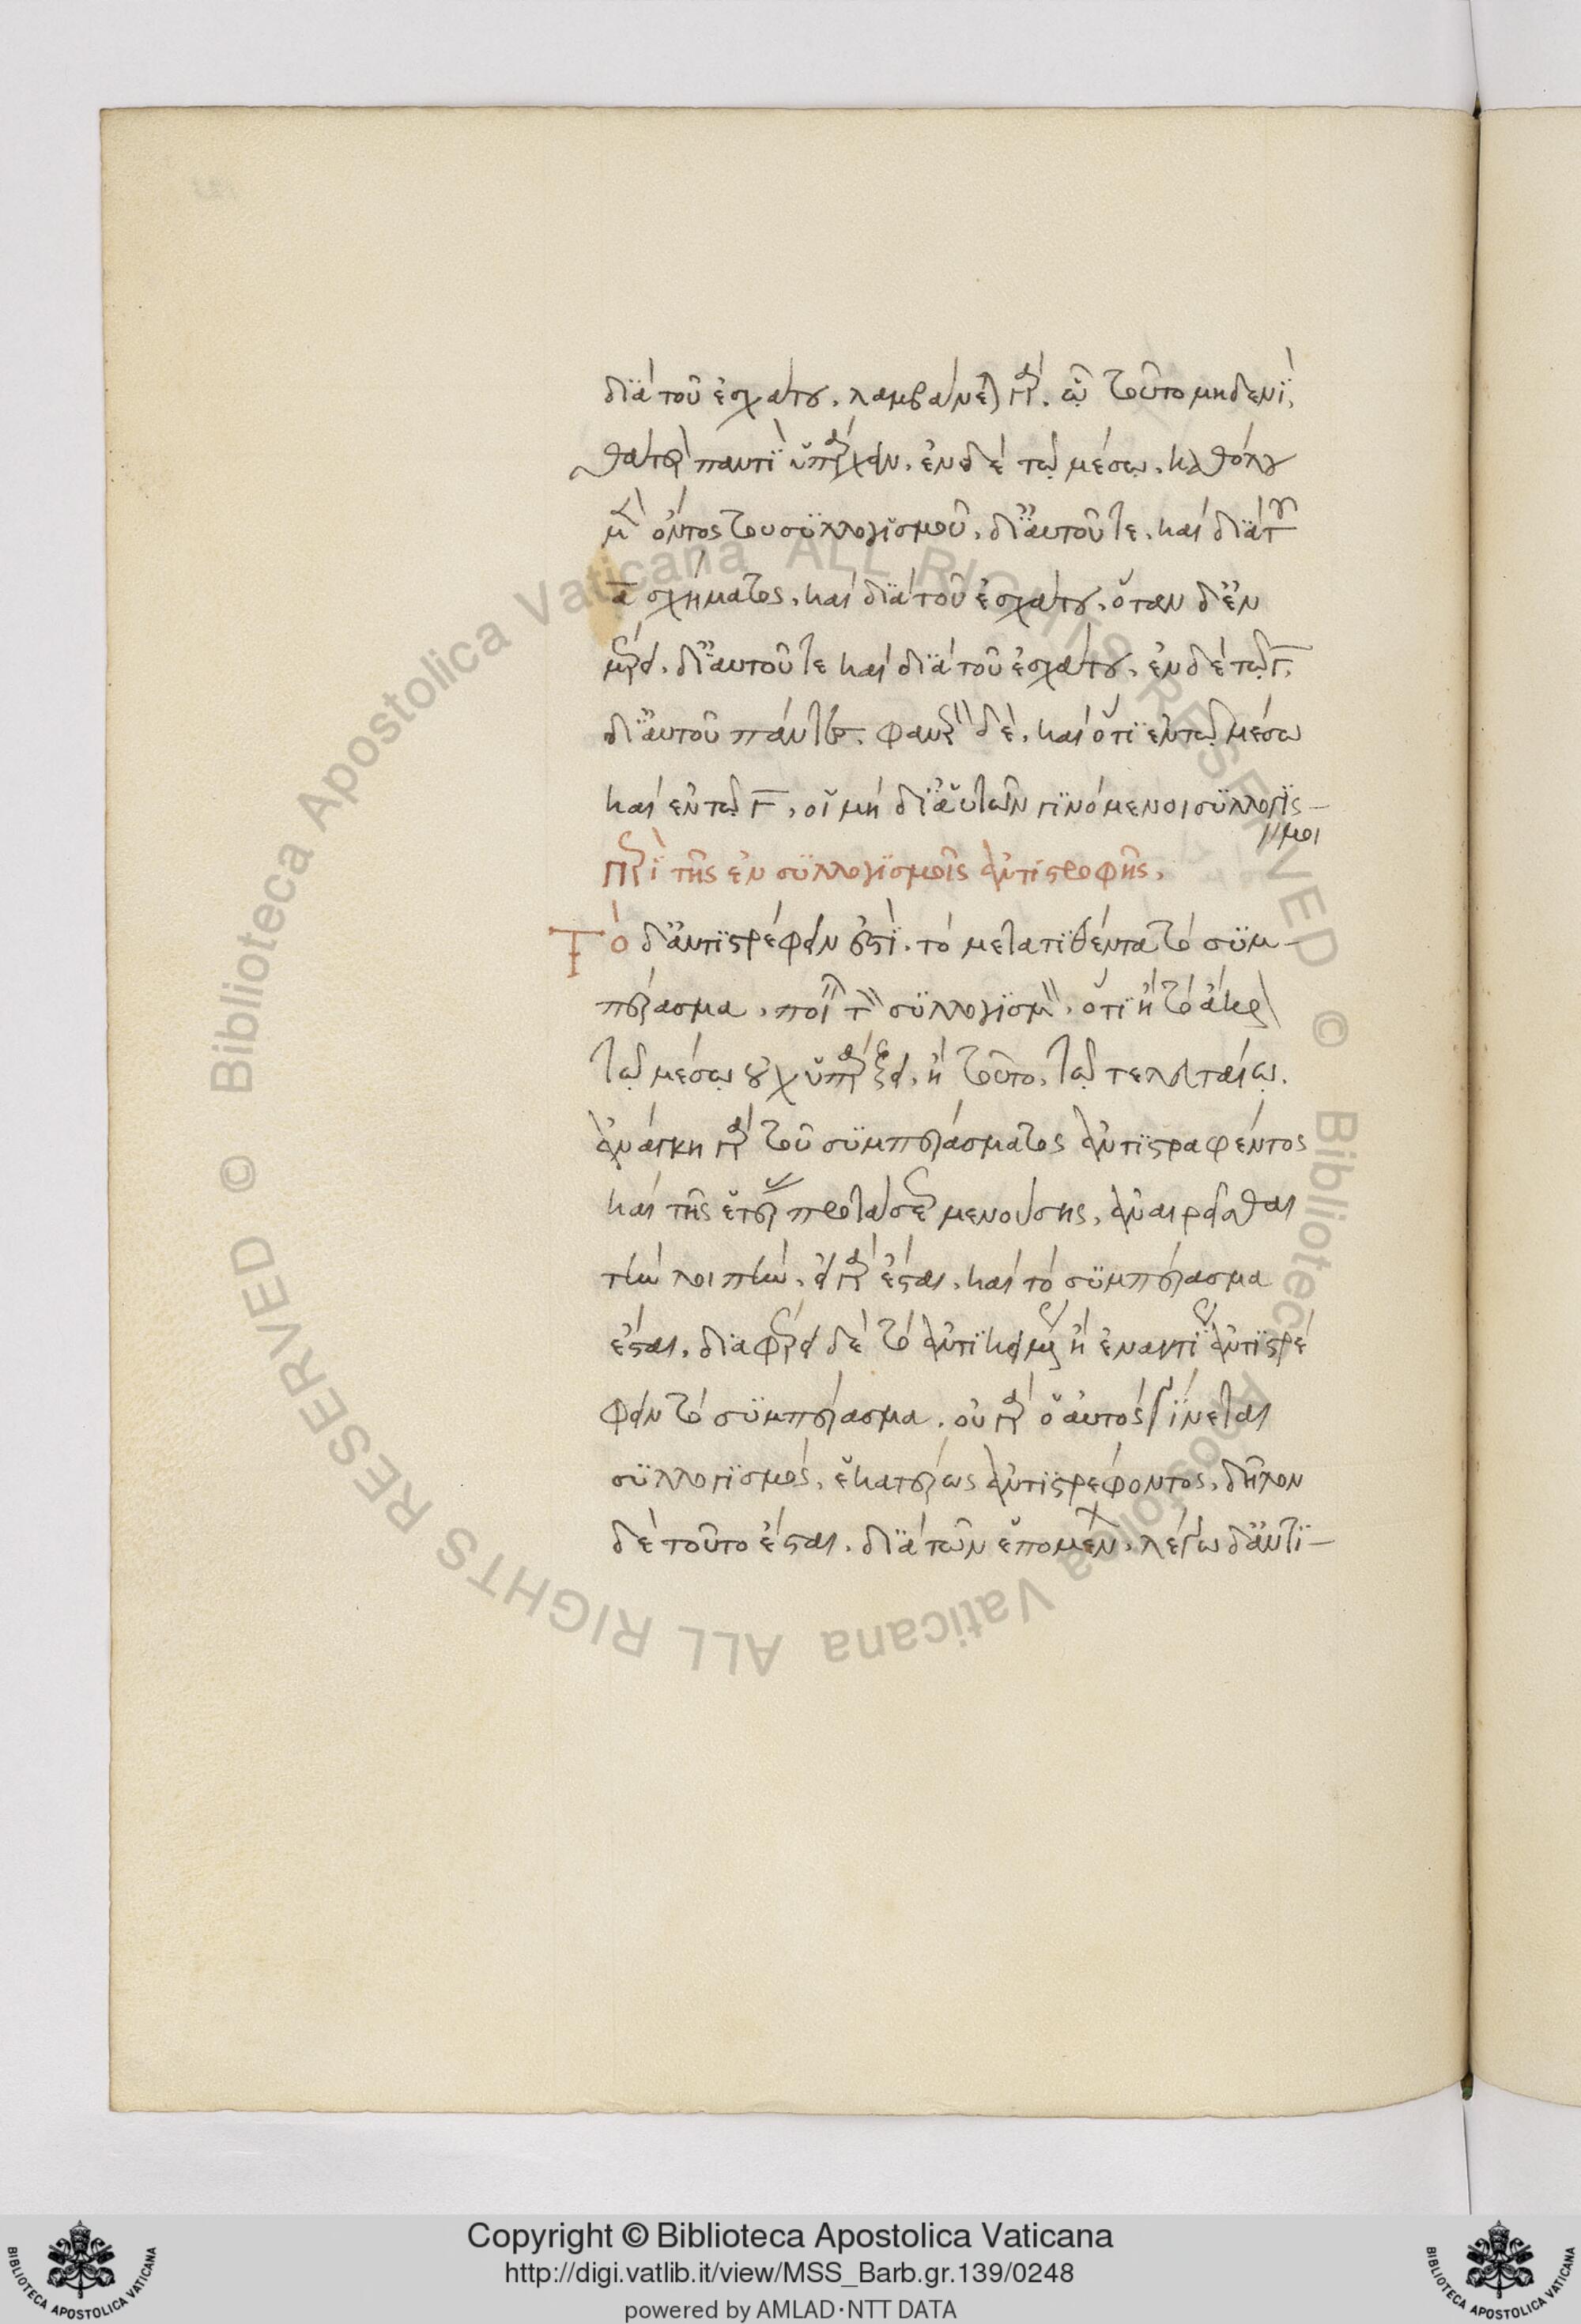 διὰ τοῦ ἐσχάτου. λαμβάνεται γάρ. ᾧ τοῦτο μηδενὶ,
θάτερον παντὶ ὑπάρχειν. ἐν δὲ τῷ μέσῳ. καθόλου
μὲν ὄντος τοῦ συλλογισμοῦ. δι' αὐτοῦ τε. καὶ διὰ τοῦ
α σχήματος. καὶ διὰ τοῦ ἐσχάτου. ὅταν δ' ἐν
μέρει. δι' αὐτοῦ τε καὶ διὰ τοῦ ἐσχάτου. ἐν δὲ τῷ γ.
δι' αὐτοῦ πάντες. φανερὸν δὲ. καὶ ὅτι ἐν τῷ μέσω
καὶ ἐν τῷ γ, οἱ μὴ δι' αὐτῶν γινόμενοι συλλογισ-
μοι
περὶ τῆς ἐν συλλογισμοῖς ἀντιστροφῆς.
Τὸ δ' ἀντιστρέφειν ἐστὶ. τὸ μετατιθέντα τὸ συμ-
πέρασμα. ποιεῖν τὸν συλλογισμὸν. ὅτι ἢ τὸ ἄκρον
τῷ μέσῳ οὐχ ὑπάρξει. ἢ τοῦτο. τῷ τελευταίῳ.
ἀνάγκη γὰρ τοῦ συμπεράσματος ἀντιστραφέντος
καὶ τῆς ἑτέρας προτάσεως μενούσης. ἀναιρεῖσθαι
τὴν λοιπὴν. εἰ γὰρ ἔσται. καὶ τὸ συμπέρασμα
ἔσται. διαφέρει δὲ τὸ ἀντικειμένως ἢ ἐναντίως ἀντιστρέ
φειν τὸ συμπέρασμα. οὐ γὰρ ὁ αὐτὸς γίνεται
συλλογισμός. ἑκατέρως ἀντιστρέφοντος. δῆλον
δὲ τοῦτο ἔσται. διὰ τῶν ἑπομένων. λέγω δ' ἀντι-
Copyright © Biblioteca Apostolica Vaticana
http://digi.vatlib.it/view/MSS_Barb.gr.139/0248
powered by AMLAD·NTT DATA